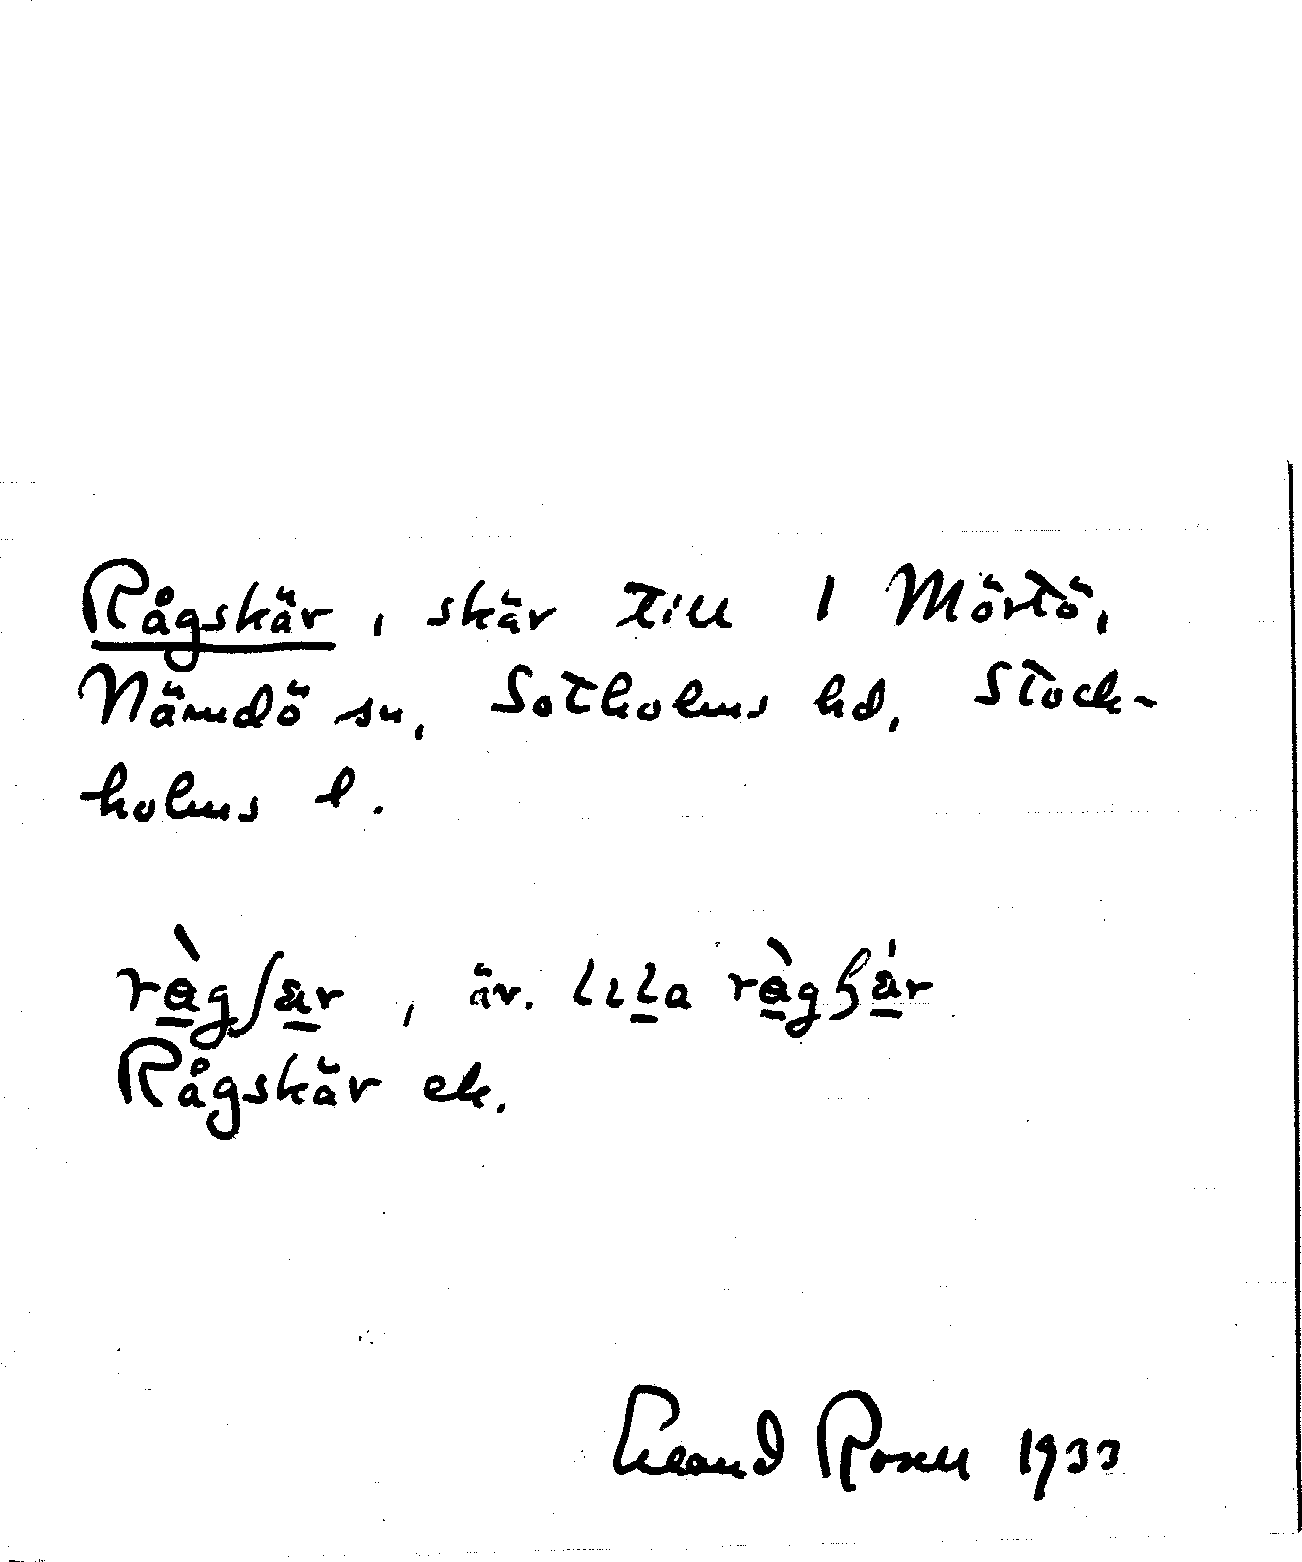 Rågskär, skär till 1 Mörtö,
Nämdö sn, Sotholms hd, Stock-
holms l.
rågʃär, äv. lilla rågʃär
Rågskär ek.
Erland Rosell 1933